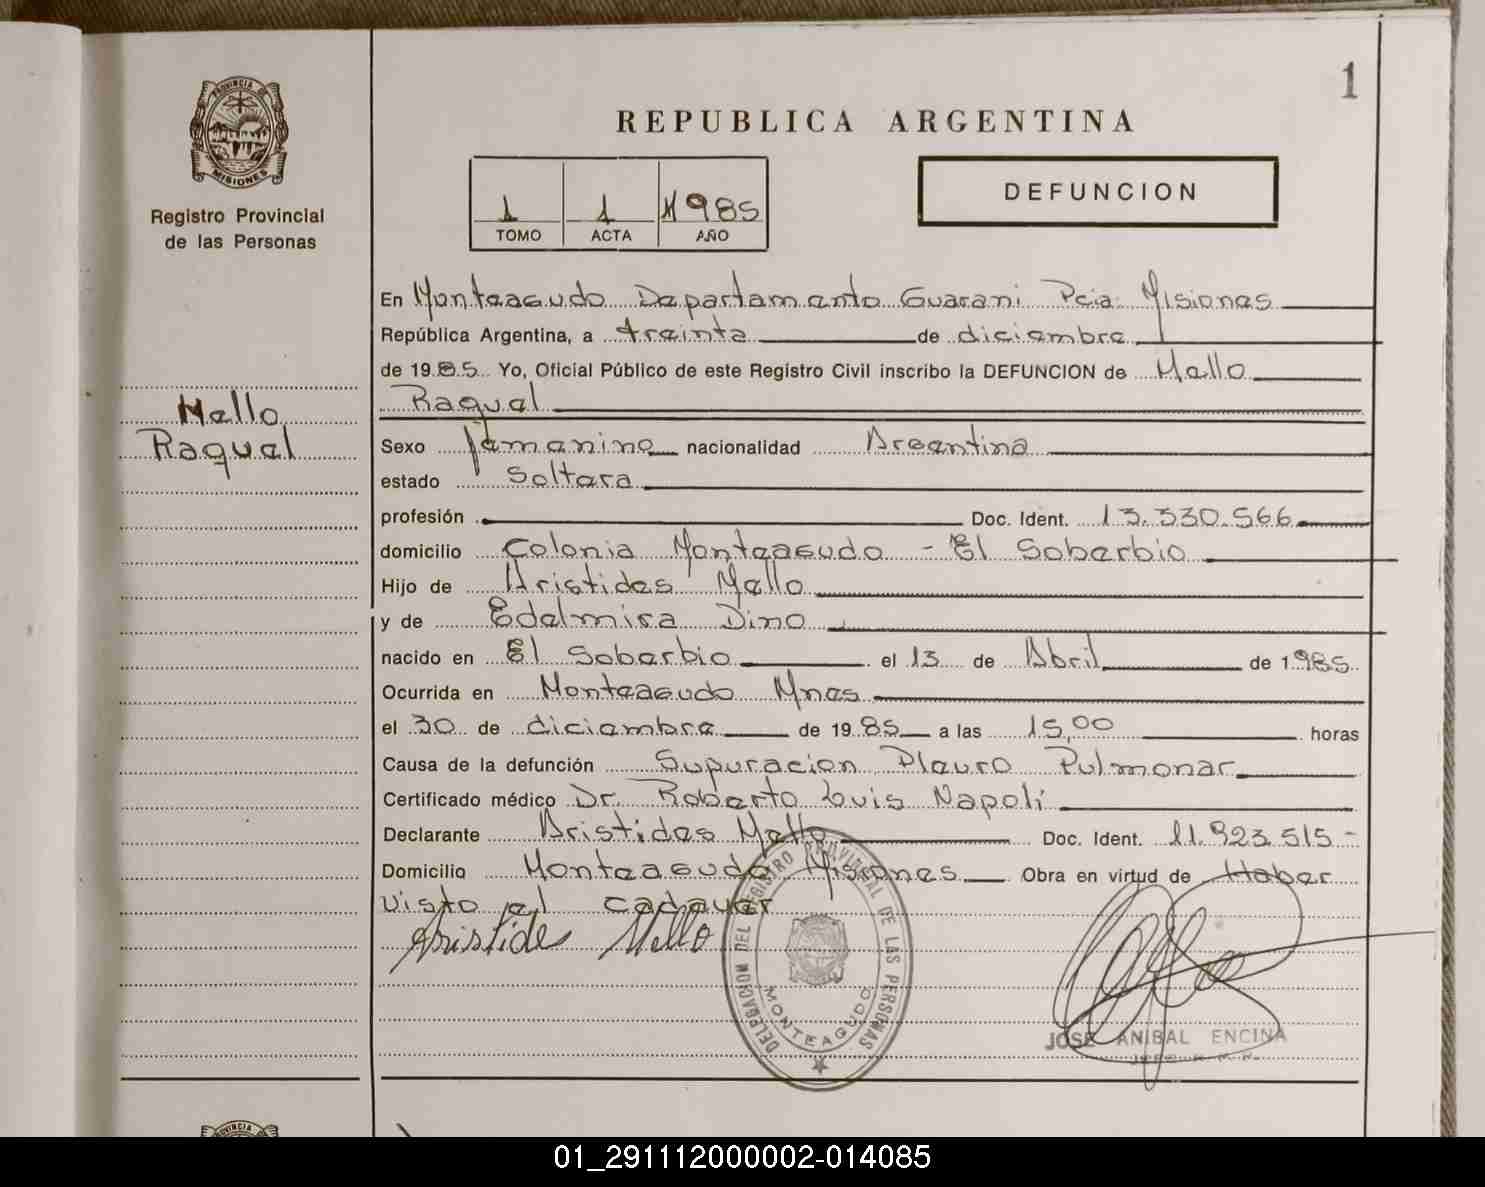 1
PROVINCIA DE
MISIONES
Registro Provincial
de las Personas
Mello
Raquel
REPUBLICA ARGENTINA
1 1 1985
TOMO ACTA AÑO
DEFUNCION
En Monteagudo Departamento Guarani Pcia Misiones
República Argentina, a treinta de diciembre
de 1985 Yo, Oficial Público de este Registro Civil inscribo la DEFUNCION de Mello
Raquel
Sexo femenino nacionalidad Argentina
estado Soltera
profesión Doc. Ident. 13.330.566
domicilio Colonia Monteagudo - El Soberbio
Hijo de Aristides Mello
y de Edelmira Dino
nacido en El Soberbio el 13 de Abril de 1985
Ocurrida en Monteagudo Mnes
el 30 de diciembre de 1985 a las 15,00 horas
Causa de la defunción Supuracion Pleuro Pulmonar
Certificado médico Dr. Roberto Luis Napoli
Declarante Aristides Mello Doc. Ident. 11.923.515-
Domicilio Monteagudo Misiones Obra en virtud de Haber
visto el cadaver
Aristide Mello
DELEGACION DEL REGISTRO PROVINCIAL DE LAS PERSONAS
MONTEAGUDO
JOSE ANIBAL ENCINA
PROVINCIA DE
01_291112000002-014085